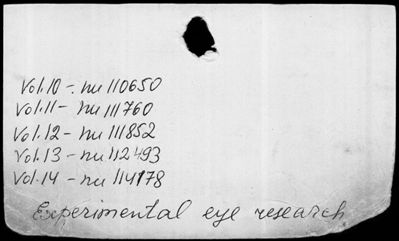 Vol.10 - nu 110650
Vol.11 - nu 111760
Vol.12 - nu 111852
Vol.13 - nu 112493
Vol.14 - nu 114178
Experimental eye research